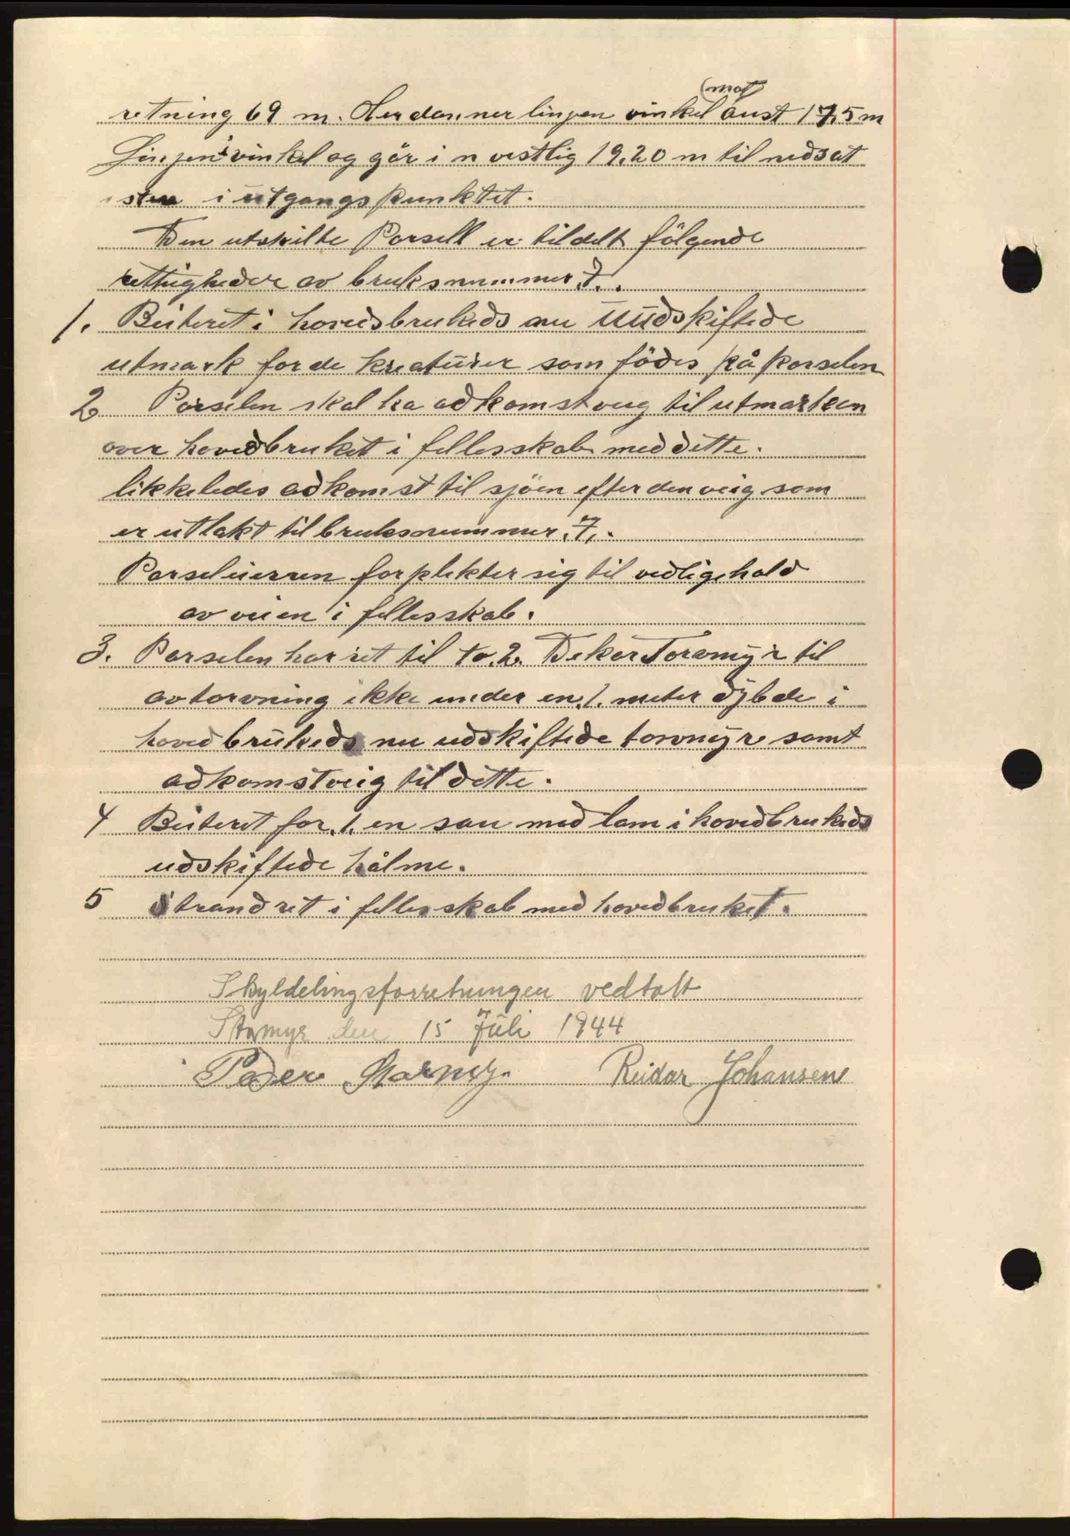 retning 69 m. Her danner linjen vinkel (mot aust 17,5 m
Linjen i vinkel og går i n vestlig 19.20 m til nedsat
sten i utgangspunktet.
Den utskilte Parsell er tildelt følgende
rettigheder av bruksnummer .7..
1. Beiteret i hovedsbrukeds nu uudskiftede
utmark for de kreaturer som födes på parselen
2 Parselen skal ha adkomstveig til utmarken
over hovedbruket i fellesskab med dette.
likkeledes adkomst til sjöen efter den veig som
er utlakt til bruksnummer .7..
Parseleieren forplekter sig til vedligehold
av veien i fellesskab.
3. Parselen har ret til to. 2. Dekar Torvmyr til
avtorvning ikke under en .1. meter dybde i
hovedbrukeds nu udskiftede torvmyr samt
adkomstveig til dette.
4 Beiteret for .1. en sau med lam i hovedbrukeds
udskiftede hålme.
5 Strandret i fellesskab med hovedbruket.
Skyldelingsforretningen vedtatt
den 15 Juli 1944
Peder Reidar Johansen